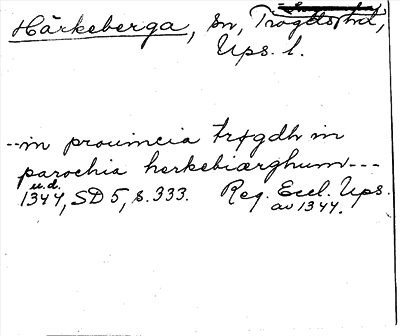 Härkeberga, sn, Trögds hd,
Ups. l.
--in prouincia trøgdh in
parochia herkebiærghum---
u.d.
1344, SD 5, s. 333. Reg. Eccl. Ups.
av 1344.